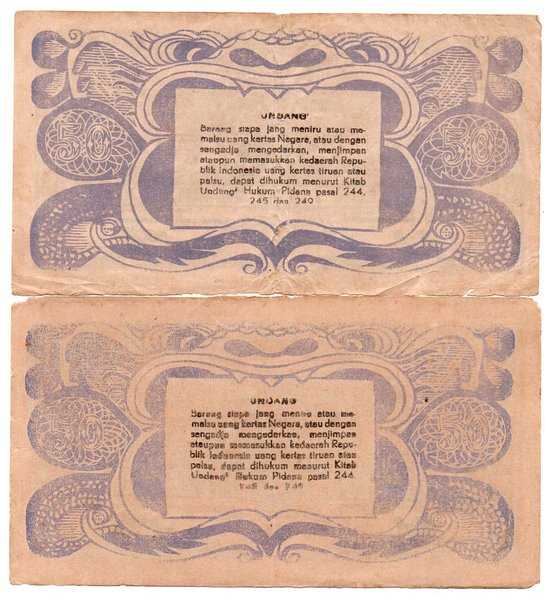 50 50
UNDANG²
Barang siapa jang meniru atau me-
malsu uang kertas Negara, atau dengan
sengadja mengedarkan, menjimpan
ataupun memasukkan kedaerah Repu-
blik Indonesia uang kertas tiruan atau
palsu, dapat dihukum menurut Kitab
Undang² Hukum Pidana pasal 244.
245 dan 249
50 50
UNDANG
Barang siapa jang meniru atau me-
malsu uang kertas Negara, atau dengan
sengadja mengedarkan, menjimpan
ataupun memasukkan kedaerah Repu-
blik Indonesia uang kertas tiruan atau
palsu, dapat dihukum menurut Kitab
Undang² Hukum Pidana pasal 244.
245 dan